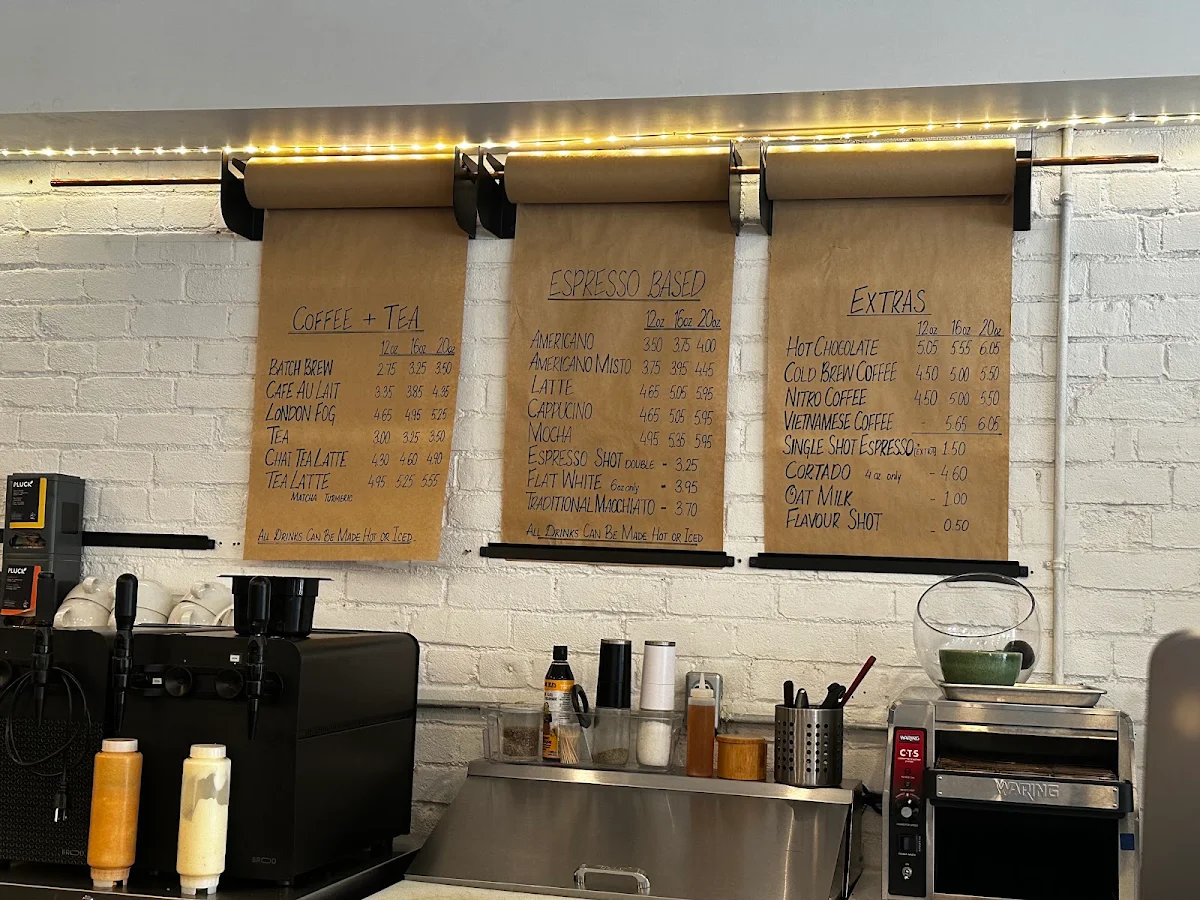 COFFEE + TEA
12oz 16oz 20oz
BATCH BREW 2.75 3.25 3.50
CAFE AU LAIT 3.35 3.85 4.35
LONDON FOG 4.65 4.95 5.25
TEA 3.00 3.25 3.50
CHAI TEA LATTE 4.30 4.60 4.90
TEA LATTE 4.95 5.25 5.55
MATCHA TURMERIC
ALL DRINKS CAN BE MADE HOT OR ICED
ESPRESSO BASED
12oz 16oz 20oz
AMERICANO 3.50 3.75 4.00
AMERICANO MISTO 3.75 3.95 4.45
LATTE 4.65 5.05 5.95
CAPPUCINO 4.65 5.05 5.95
MOCHA 4.95 5.35 5.95
ESPRESSO SHOT DOUBLE - 3.25
FLAT WHITE 6oz only - 3.95
TRADITIONAL MACCHIATO - 3.70
ALL DRINKS CAN BE MADE HOT OR ICED
EXTRAS
12oz 16oz 20oz
HOT CHOCOLATE 5.05 5.55 6.05
COLD BREW COFFEE 4.50 5.00 5.50
NITRO COFFEE 4.50 5.00 5.50
VIETNAMESE COFFEE - 5.65 6.05
SINGLE SHOT ESPRESSO (EXTRA) 1.50
CORTADO 4oz only - 4.60
OAT MILK - 1.00
FLAVOUR SHOT - 0.50
PLUCK
PLUCK
WARING
CTS
WARING